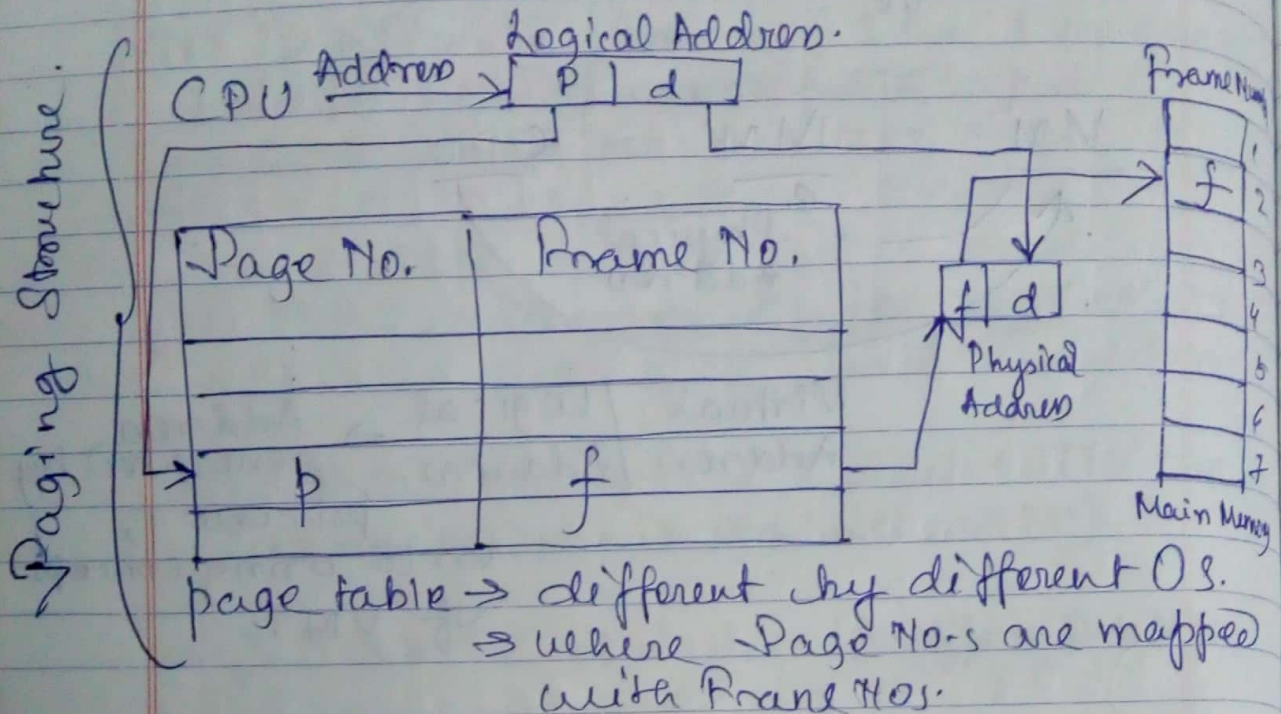 Paging Structure.
Logical Address.
CPU Address p d
Frame Num
1
f 2
3
4
5
6
7
Main Memory
Page No. Frame No.
p f
f d
Physical
Address
page table → different by different OS.
→ where Page No-s are mapped
with Frame Nos.